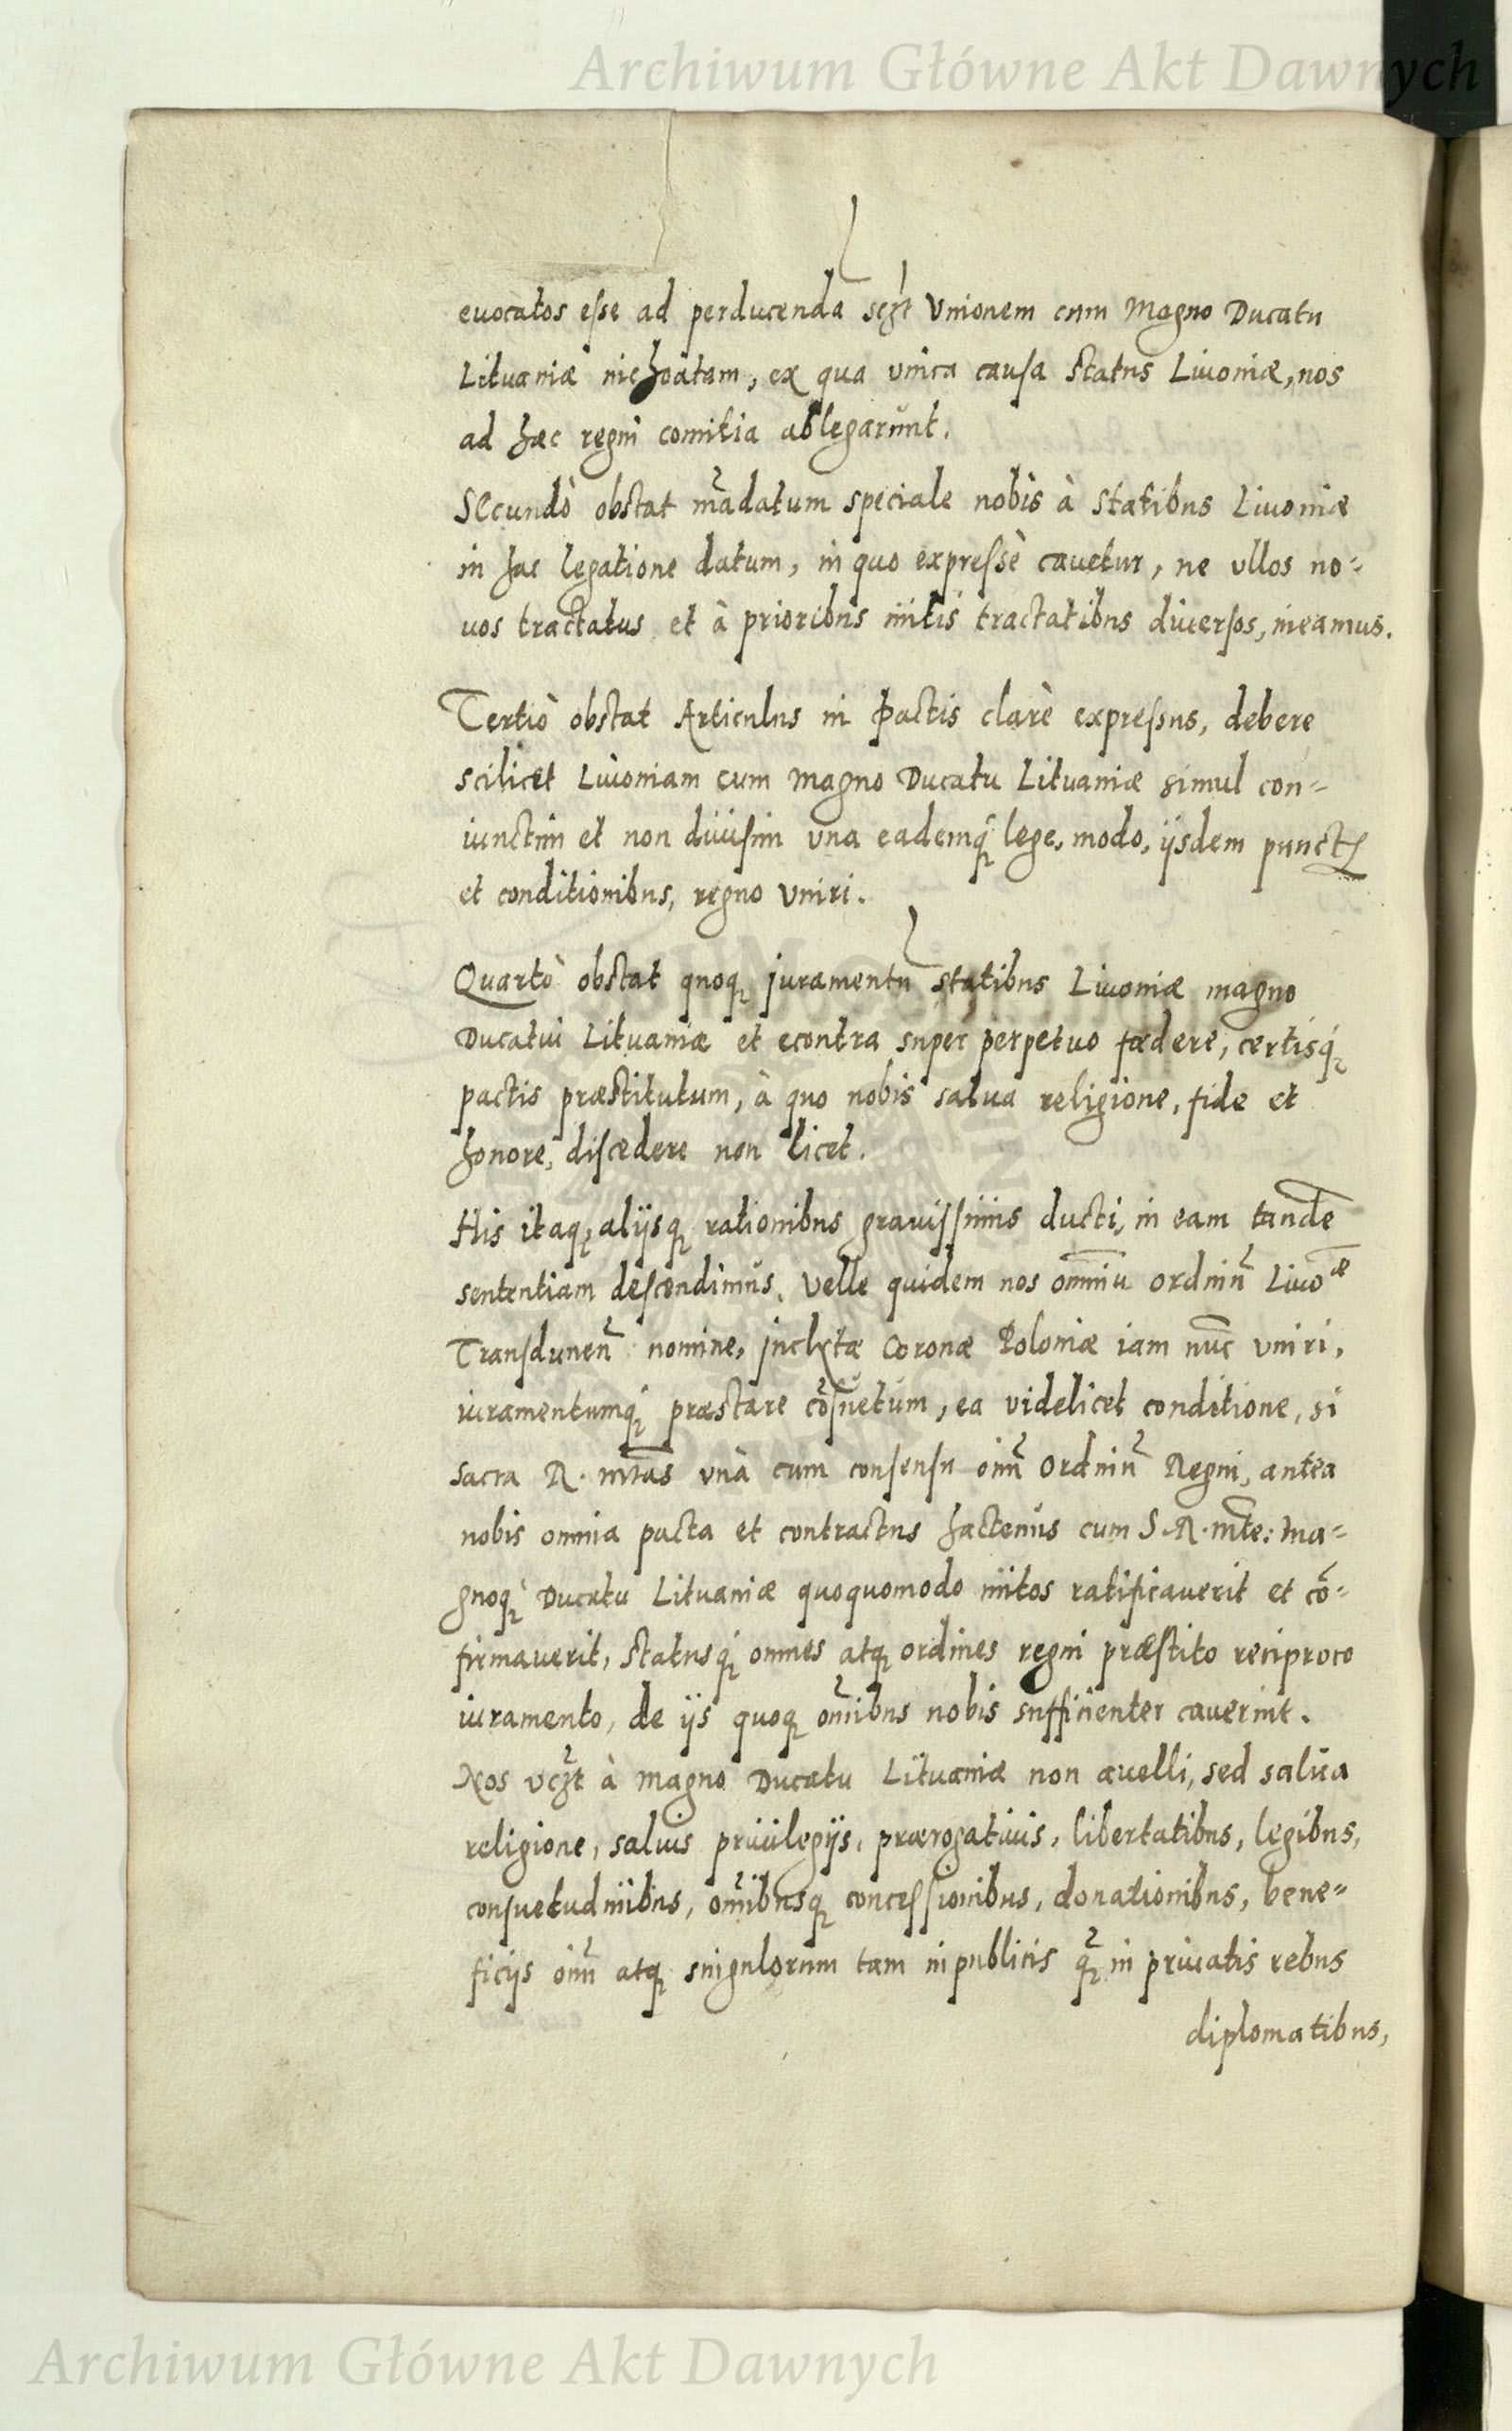 Archiwum Główne Akt Dawnych
euocatos eſse ad perducendã Vnionem cum Magno Ducatu
Lituaniæ inchoatam, ex qua vnica cauſa Status Liuoniæ, nos
ad hæc regni comitia ablegarunt.
Secundò obstat mãdatum speciale nobis à statibus Liuoniæ
in hac legatione datum, in quo expreſsè cauetur, ne vllos no=
uos tractatus et à prioribus initis tractatibus diuerſos, ineamus.
Tertiò obstat Articulus in Pactis clarè expreſsus, debere
scilicet Liuoniam cum Magno Ducatu Lituaniæ simul con=
iunctim et non diuiſim vna eademq; lege, modo, ijsdem punctꝭ
et conditionibus, regno vniri.
Quartò obstat quoq; juramentũ statibus Liuoniæ magno
Ducatui Lituaniæ et econtra super perpetuo fœdere, certisq;
pactis præstitutum, à quo nobis salua religione, fide et
honore, diſcedere non licet.
His itaq; alijsq; rationibus grauiſſimis ducti, in eam tandẽ
sententiam deſcendimus, Velle quidem nos omniũ ordinũ Liuoæ
Tranſdunen̄ nomine, jnclytæ Coronæ Poloniæ iam nũc vniri,
iuramentumq; præstare cõſuetum, ea videlicet conditione, si
sacra R. mtas vnà cum conſenſu oĩm Ordinũ Regni, antea
nobis omnia pacta et contractus hactenus cum S. R. mte: Ma=
gnoq; Ducatu Lituaniæ quoquomodo initos ratificauerit et cõ=
firmauerit, Statusq; omnes atq; ordines regni præſtito reciproco
iuramento, de ijs quoq; oĩbus nobis sufficienter cauerint.
Nos à Magno Ducatu Lituaniæ non auelli, sed salua
religione, saluis priuilegijs, prærogatiuis, libertatibus, legibus,
conſuetudinibus, oĩbusq; conceſſionibus, donationibus, bene=
ficijs oĩm atq; singulorum tam in publicis q̃; in priuatis rebus
diplomatibus,
Archiwum Główne Akt Dawnych